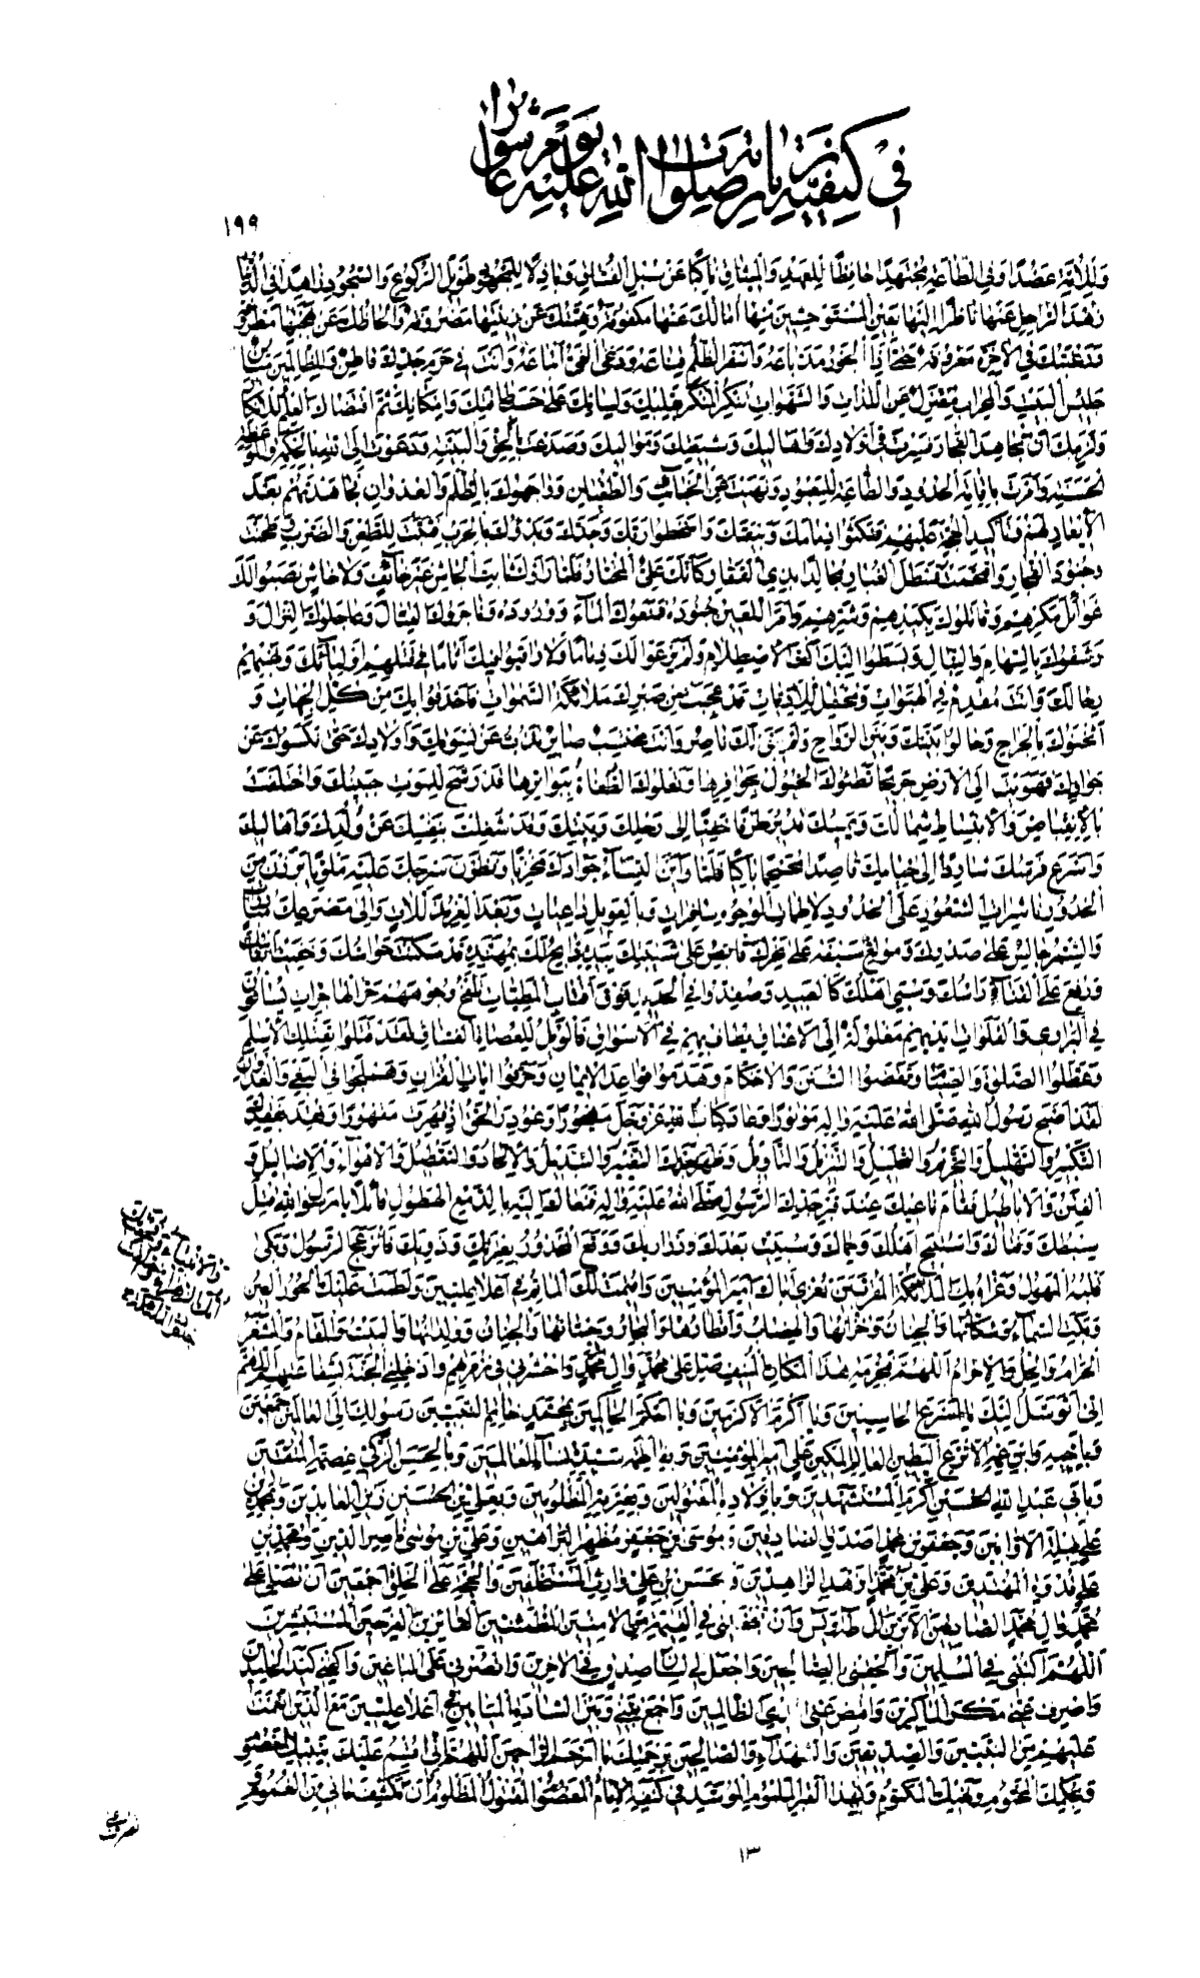 في كيفية زيارته صلوات الله عليه يوم عاشورا
١٩٩
وللأمة عضدا وفي الطاعة مجتهدا حافظا للعهد والميثاق ناكبا عن سبل الفساق وباذلا للمجهود طويل الركوع والسجود زاهدا في الدنيا
زهد الراحل عنها ناظرا إليها بعين المستوحشين منها آمالك عنها مكفوفة وهمتك عن زينتها مصروفة وألحاظك عن بهجتها مطروفة
ورغبتك في الآخرة معروفة حتى إذا الجور مد باعه وأسفر الظلم قناعه ودعى الغي أتباعه وأنت في حرم جدك قاطن وللظالمين مباين
جليس البيت والمحراب معتزل عن اللذات والشهوات تنكر المنكر بقلبك ولسانك على حسب طاقتك وإمكانك ثم اقتضاك العلم للإنكار
ولزمك أن تجاهد الفجار فسرت في أولادك وأهاليك وشيعتك ومواليك وصدعت بالحق والبينة ودعوت إلى الله بالحكمة والموعظة
الحسنة وأمرت بإقامة الحدود والطاعة للمعبود ونهيت عن الخبائث والطغيان وواجهوك بالظلم والعدوان فجاهدتهم بعد
الإيعاد لهم وتأكيد الحجة عليهم فنكثوا ذمامك وبيعتك وأسخطوا ربك وجدك وبدؤك بالحرب فثبت للطعن والضرب وطحنت
جنود الفجار واقتحمت قسطل الغبار مجالدا بذي الفقار كأنك علي المختار فلما رأوك ثابت الجاش غير خائف ولا خاش نصبوا لك
غوائل مكرهم وقاتلوك بكيدهم وشرهم وأمر اللعين جنوده فمنعوك الماء ووروده وناجزوك القتال وعاجلوك النزال و
رشقوك بالسهام والنبال وبسطوا إليك أكف الاصطلام ولم يرعوا لك ذماما ولا راقبوا فيك أثاما في قتلهم أولياءك ونهبهم
رحالك وأنت مقدم في الهبوات ومحتمل للأذيات قد عجبت من صبرك ملائكة السموات فأحدقوا بك من كل الجهات و
أثخنوك بالجراح وحالوا بينك وبين الرواح ولم يبق لك ناصر وأنت محتسب صابر تذب عن نسوتك وأولادك حتى نكسوك عن
جوادك فهويت إلى الأرض جريحا تطؤك الخيول بحوافرها وتعلوك الطغاة ببواترها قد رشح للموت جبينك واختلفت
بالانقباض والانبساط شمالك ويمينك تدير طرفا خفيا إلى رحلك وبيتك وقد شغلت بنفسك عن ولدك وأهاليك
وأسرع فرسك شاردا إلى خيامك قاصدا محمحما باكيا فلما رأين النساء جوادك مخزيا ونظرن سرجك عليه ملويا برزن من
الخدور ناشرات الشعور على الخدود لاطمات الوجوه سافرات وبالعويل داعيات وبعد العز مذللات وإلى مصرعك مبادرات
والشمر جالس على صدرك ومولغ سيفه على نحرك قابض على شيبتك بيده ذابح لك بمهنده قد سكنت حواسك وخفيت أنفاسك
ورفع على القناة راسك وسبي أهلك كالعبيد وصفدوا في الحديد فوق أقتاب المطيات تلفح وجوههم حر الهاجرات يساقون
في البراري والفلوات أيديهم مغلولة إلى الأعناق يطاف بهم في الأسواق فالويل للعصاة الفساق لقد قتلوا بقتلك الإسلام
وعطلوا الصلوة والصيام ونقضوا السنن والأحكام وهدموا قواعد الإيمان وحرفوا آيات القرآن وهملجوا في البغي والعدوان
لقد أصبح رسول الله صلى الله عليه وآله موتورا وعاد كتاب الله عز وجل مهجورا وغودر الحق إذ قهرت مقهورا وفقد بفقدك
التكبير والتهليل والتحريم والتحليل والتنزيل والتأويل وظهر بعدك التغيير والتبديل والإلحاد والتعطيل والأهواء والأضاليل و
الفتن والأباطيل فقام ناعيك عند قبر جدك الرسول صلى الله عليه وآله فنعاك إليه بالدمع الهطول قائلا يا رسول الله قتل
سبطك وفتاك واستبيح أهلك وحماك وسبيت بعدك ذراريك ووقع المحذور بعترتك وذويك فانزعج الرسول وبكى
قلبه المهول وعزاه بك الملائكة والأنبياء وفجعت بك أمك الزهراء واختلفت جنود الملائكة المقربين تعزي أباك أمير المؤمنين وأقيمت لك المآتم في أعلا عليين ولطمت عليك الحور العين
وبكت السماء وسكانها والجنان وخزانها والهضاب وأقطارها والبحار وحيتانها والجنان وولدانها والبيت والمقام والمشعر
الحرام والحل والإحرام اللهم فبحرمة هذا المكان المنيف صل على محمد وآل محمد واحشرني في زمرتهم وأدخلني الجنة بشفاعتهم اللهم
إني أتوسل إليك يا أسرع الحاسبين ويا أكرم الأكرمين ويا أحكم الحاكمين بمحمد خاتم النبيين رسولك إلى العالمين أجمعين
وبأخيه وابن عمه الأنزع البطين العالم المكين علي أمير المؤمنين وبفاطمة سيدة نساء العالمين وبالحسن الزكي عصمة المتقين
وبأبي عبد الله الحسين أكرم المستشهدين وبأولاده المقتولين وبعترته المظلومين وبعلي بن الحسين زين العابدين وبمحمد بن
علي قبلة الأوابين وجعفر بن محمد أصدق الصادقين وموسى بن جعفر مظهر البراهين وعلي بن موسى ناصر الدين ومحمد بن
علي قدوة المهتدين وعلي بن محمد أزهد الزاهدين والحسن بن علي وارث المستخلفين والحجة على الخلق أجمعين أن تصلي على
محمد وآل محمد الصادقين الأبرين آل طه ويس وأن تجعلني في القيمة من الآمنين المطمئنين الفائزين الفرحين المستبشرين
اللهم اكتبني في المسلمين وألحقني بالصالحين واجعل لي لسان صدق في الآخرين وانصرني على الباغين واكفني كيد الحاسدين
واصرف عني مكر الماكرين واقبض عني أيدي الظالمين واجمع بيني وبين السادة الميامين في أعلا عليين مع الذين أنعمت
عليهم من النبيين والصديقين والشهداء والصالحين برحمتك يا أرحم الراحمين اللهم إني أقسم عليك بنبيك المعصوم
وبحكمك المحتوم ونهيك المكتوم وبهذا القبر الملموم الموسد في كنفه الإمام المعصوم المقتول المظلوم أن تكشف ما بي من الغموم و
١٣